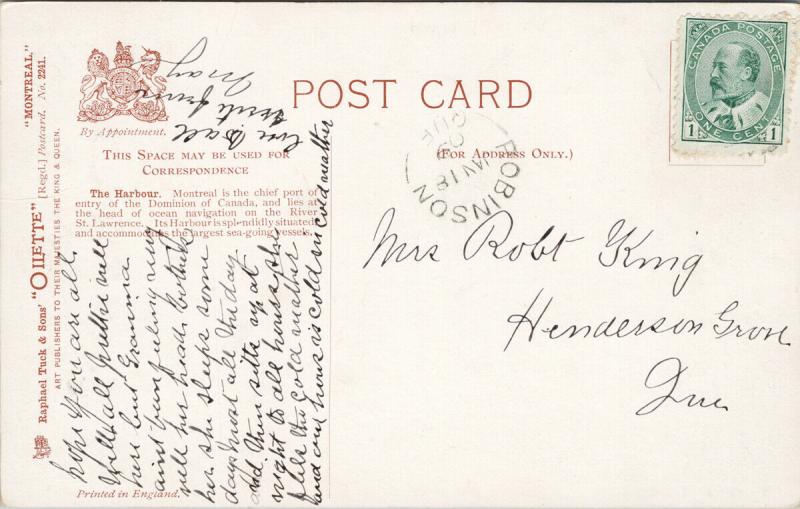 "MONTREAL."
Raphael Tuck & Sons' "OILETTE" [Regd.] Postcard, No. 2241.
ART PUBLISHERS TO THEIR MAJESTIES THE KING & QUEEN.
By Appointment.
POST CARD
THIS SPACE MAY BE USED FOR
CORRESPONDENCE
(FOR ADDRESS ONLY.)
The Harbour. Montreal is the chief port of
entry of the Dominion of Canada, and lies at
the head of ocean navigation on the River
St. Lawrence. Its Harbour is splendidly situated
and accommodates the largest sea-going vessels.
hope you are all
well all
here but Granma
aint been feling very
well her head
her she sleeps some
days most all the day
and then sitts up at
night to all hours she
feels the cold wather
and our house is cold in cold wather
love to all
from
May
Printed in England.
CANADA POSTAGE
1 ONE CENT 1
ROBINSON
JAN 18
09
QUE
Mrs Robt King
Henderson Grove
Que